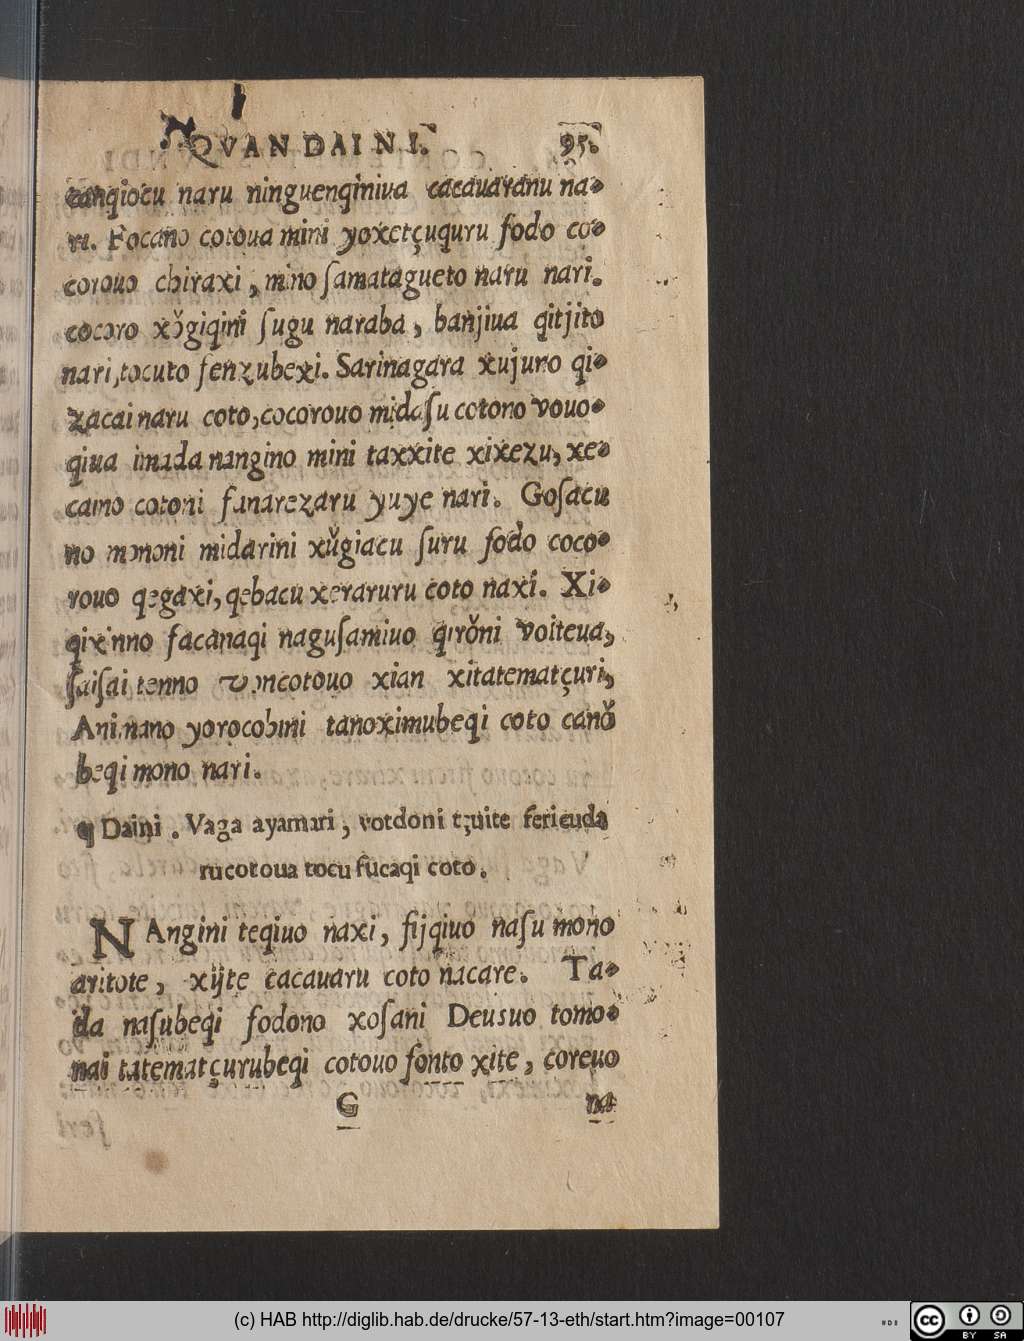 QVAN DAI NI. 95.
canqiocu naru ninguenqiniua cacauaranu na-
ri. Focano cotoua mini yoxetçuquru fodo co-
corouo chiraxi, mino ſamatagueto naru nari.
cocoro xǒgiqini ſugu naraba, banjiua qitjito
nari, tocuto fenzubexi. Sarinagara xujuno qi-
zacai naru coto, cocorouo midaſu cotono vouo-
qiua imada nangino mini taxxite xixezu, xe-
camo cotoni fanarezaru yuye nari. Goſacu
no monni midarini xǔgiacu ſuru fodo coco-
rouo qegaxi, qebacu xeraruru coto naxi. Xi-
qixinno facanaqi naguſamiuo qirǒni voiteua,
ſaiſai tenno voncotouo xian xitatematçuri,
Anj nano yorocobini tanoximubeqi coto canǒ
beqi mono nari.
¶ Daini. Vaga ayamari, votdoni tçuite fericuda
rucotoua tocu fucaqi coto.
NAngini teqiuo naxi, fijqiuo naſu mono
aritote, xijte cacauaru coto nacare. Ta-
da naſubeqi fodono xoſani Deusuo tomo-
nai tatematçurubeqi cotouo fonto xite, coreuo
G na
(c) HAB http://diglib.hab.de/drucke/57-13-eth/start.htm?image=00107
cc BY SA